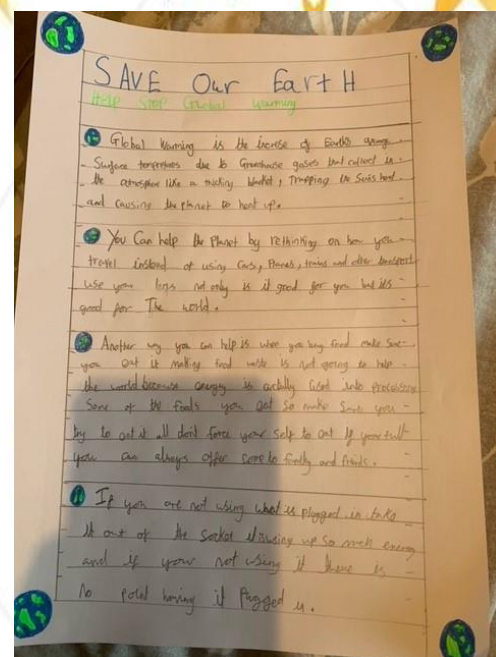 SAVE Our EartH
Help Stop Global Warming
Global Warming is the increse of Earths
Surface due to Greenhouse gases that collect in
the atmosphere like a blanket, Trapping the Suns heat
and causing the planet to heat up.
You Can help the Planet by rethinking on how you
travel instead of using Cars, Planes, trains and other transport
use your legs not only is it good for you but it's
good for The world.
Another way you can help is when you buy food make Sure
you eat it making food waste is not going to help
the world because energy is used into
Some of the foods you eat so make Sure you
try to eat it all don't force your self to eat If your full
you can always offer some to family and friends.
If you are not using what is plugged in take
it out of the Socket using up so much energy
and if your not using it there is
No point having it Plugged in.